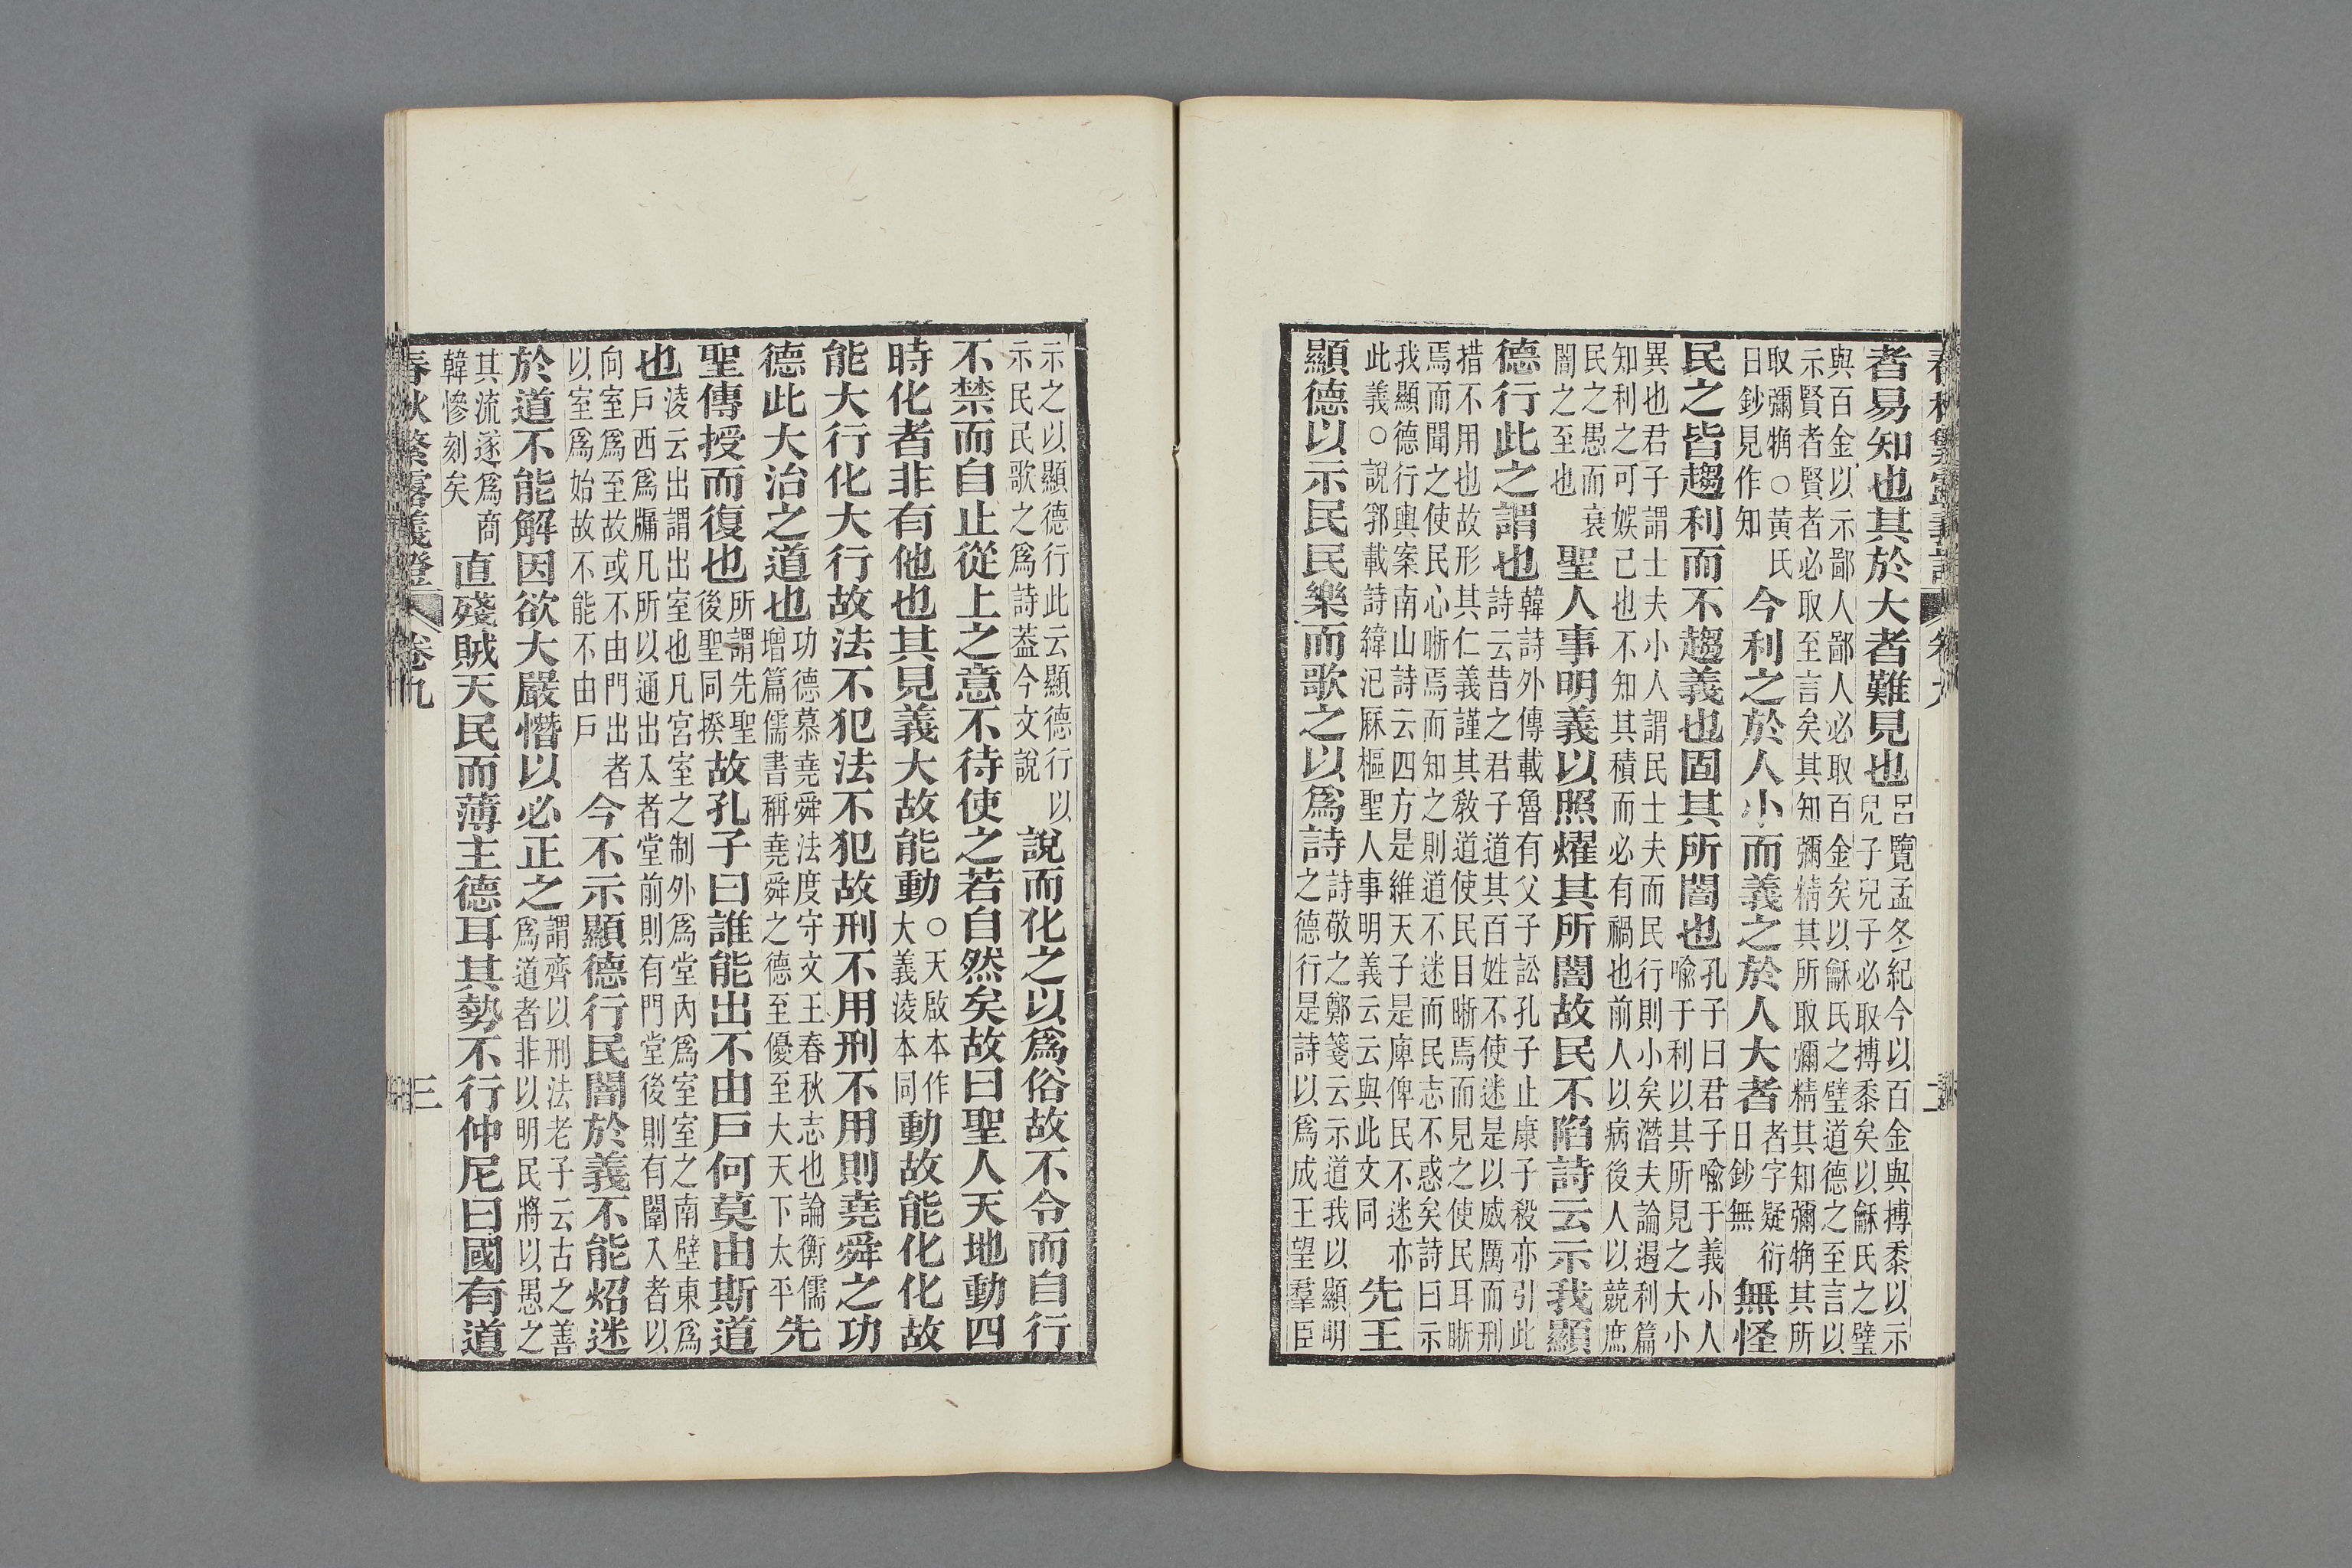 春秋繁露義證　卷九　二
者易知也其於大者難見也呂覽孟冬紀今以百金與搏黍以示兒子兒子必取搏黍矣以龢氏之璧
與百金以示鄙人鄙人必取百金矣以龢氏之璧道德之至言以示賢者賢者必取至言矣其知彌精其所取彌精其知彌觕其所
取彌觕○黃氏日鈔見作知今利之於人小而義之於人大者者字疑衍日鈔無無怪
民之皆趨利而不趨義也固其所闇也孔子曰君子喻于義小人喻于利以其所見之大小
異也君子謂士夫小人謂民士夫而民行則小矣潛夫論遏利篇知利之可娛己也不知其積而必有禍也前人以病後人以競庶
民之愚而衰闇之至也聖人事明義以照燿其所闇故民不陷詩云示我顯
德行此之謂也韓詩外傳載魯有父子訟孔子止康子殺亦引此詩云昔之君子道其百姓不使迷是以威厲而刑
措不用也故形其仁義謹其敎道使民目晰焉而見之使民耳晰焉而聞之使民心晰焉而知之則道不迷而民志不惑矣詩曰示
我顯德行輿案南山詩云四方是維天子是庳俾民不迷亦此義○說郛載詩緯汜厤樞聖人事明義云云與此文同先王
顯德以示民民樂而歌之以爲詩詩敬之鄭箋云示道我以顯明之德行是詩以爲成王望羣臣
示之以顯德行此云顯德行以示民民歌之爲詩葢今文說說而化之以爲俗故不令而自行
不禁而自止從上之意不待使之若自然矣故曰聖人天地動四
時化者非有他也其見義大故能動○天啟本作大義淩本同動故能化化故
能大行化大行故法不犯法不犯故刑不用刑不用則堯舜之功
德此大治之道也功德慕堯舜法度守文王春秋志也論衡儒增篇儒書稱堯舜之德至優至大天下太平先
聖傳授而復也所謂先聖後聖同揆故孔子曰誰能出不由戶何莫由斯道
也淩云出謂出室也凡宮室之制外爲堂內爲室室之南壁東爲戶西爲牖凡所以通出入者堂前則有門堂後則有闈入者以
向室爲至故或不由門出者以室爲始故不能不由戶今不示顯德行民闇於義不能炤迷
於道不能解因欲大嚴憯以必正之謂齊以刑法老子云古之善爲道者非以明民將以愚之
其流遂爲商韓慘刻矣直殘賊天民而薄主德耳其勢不行仲尼曰國有道
春秋繁露義證　卷九　三